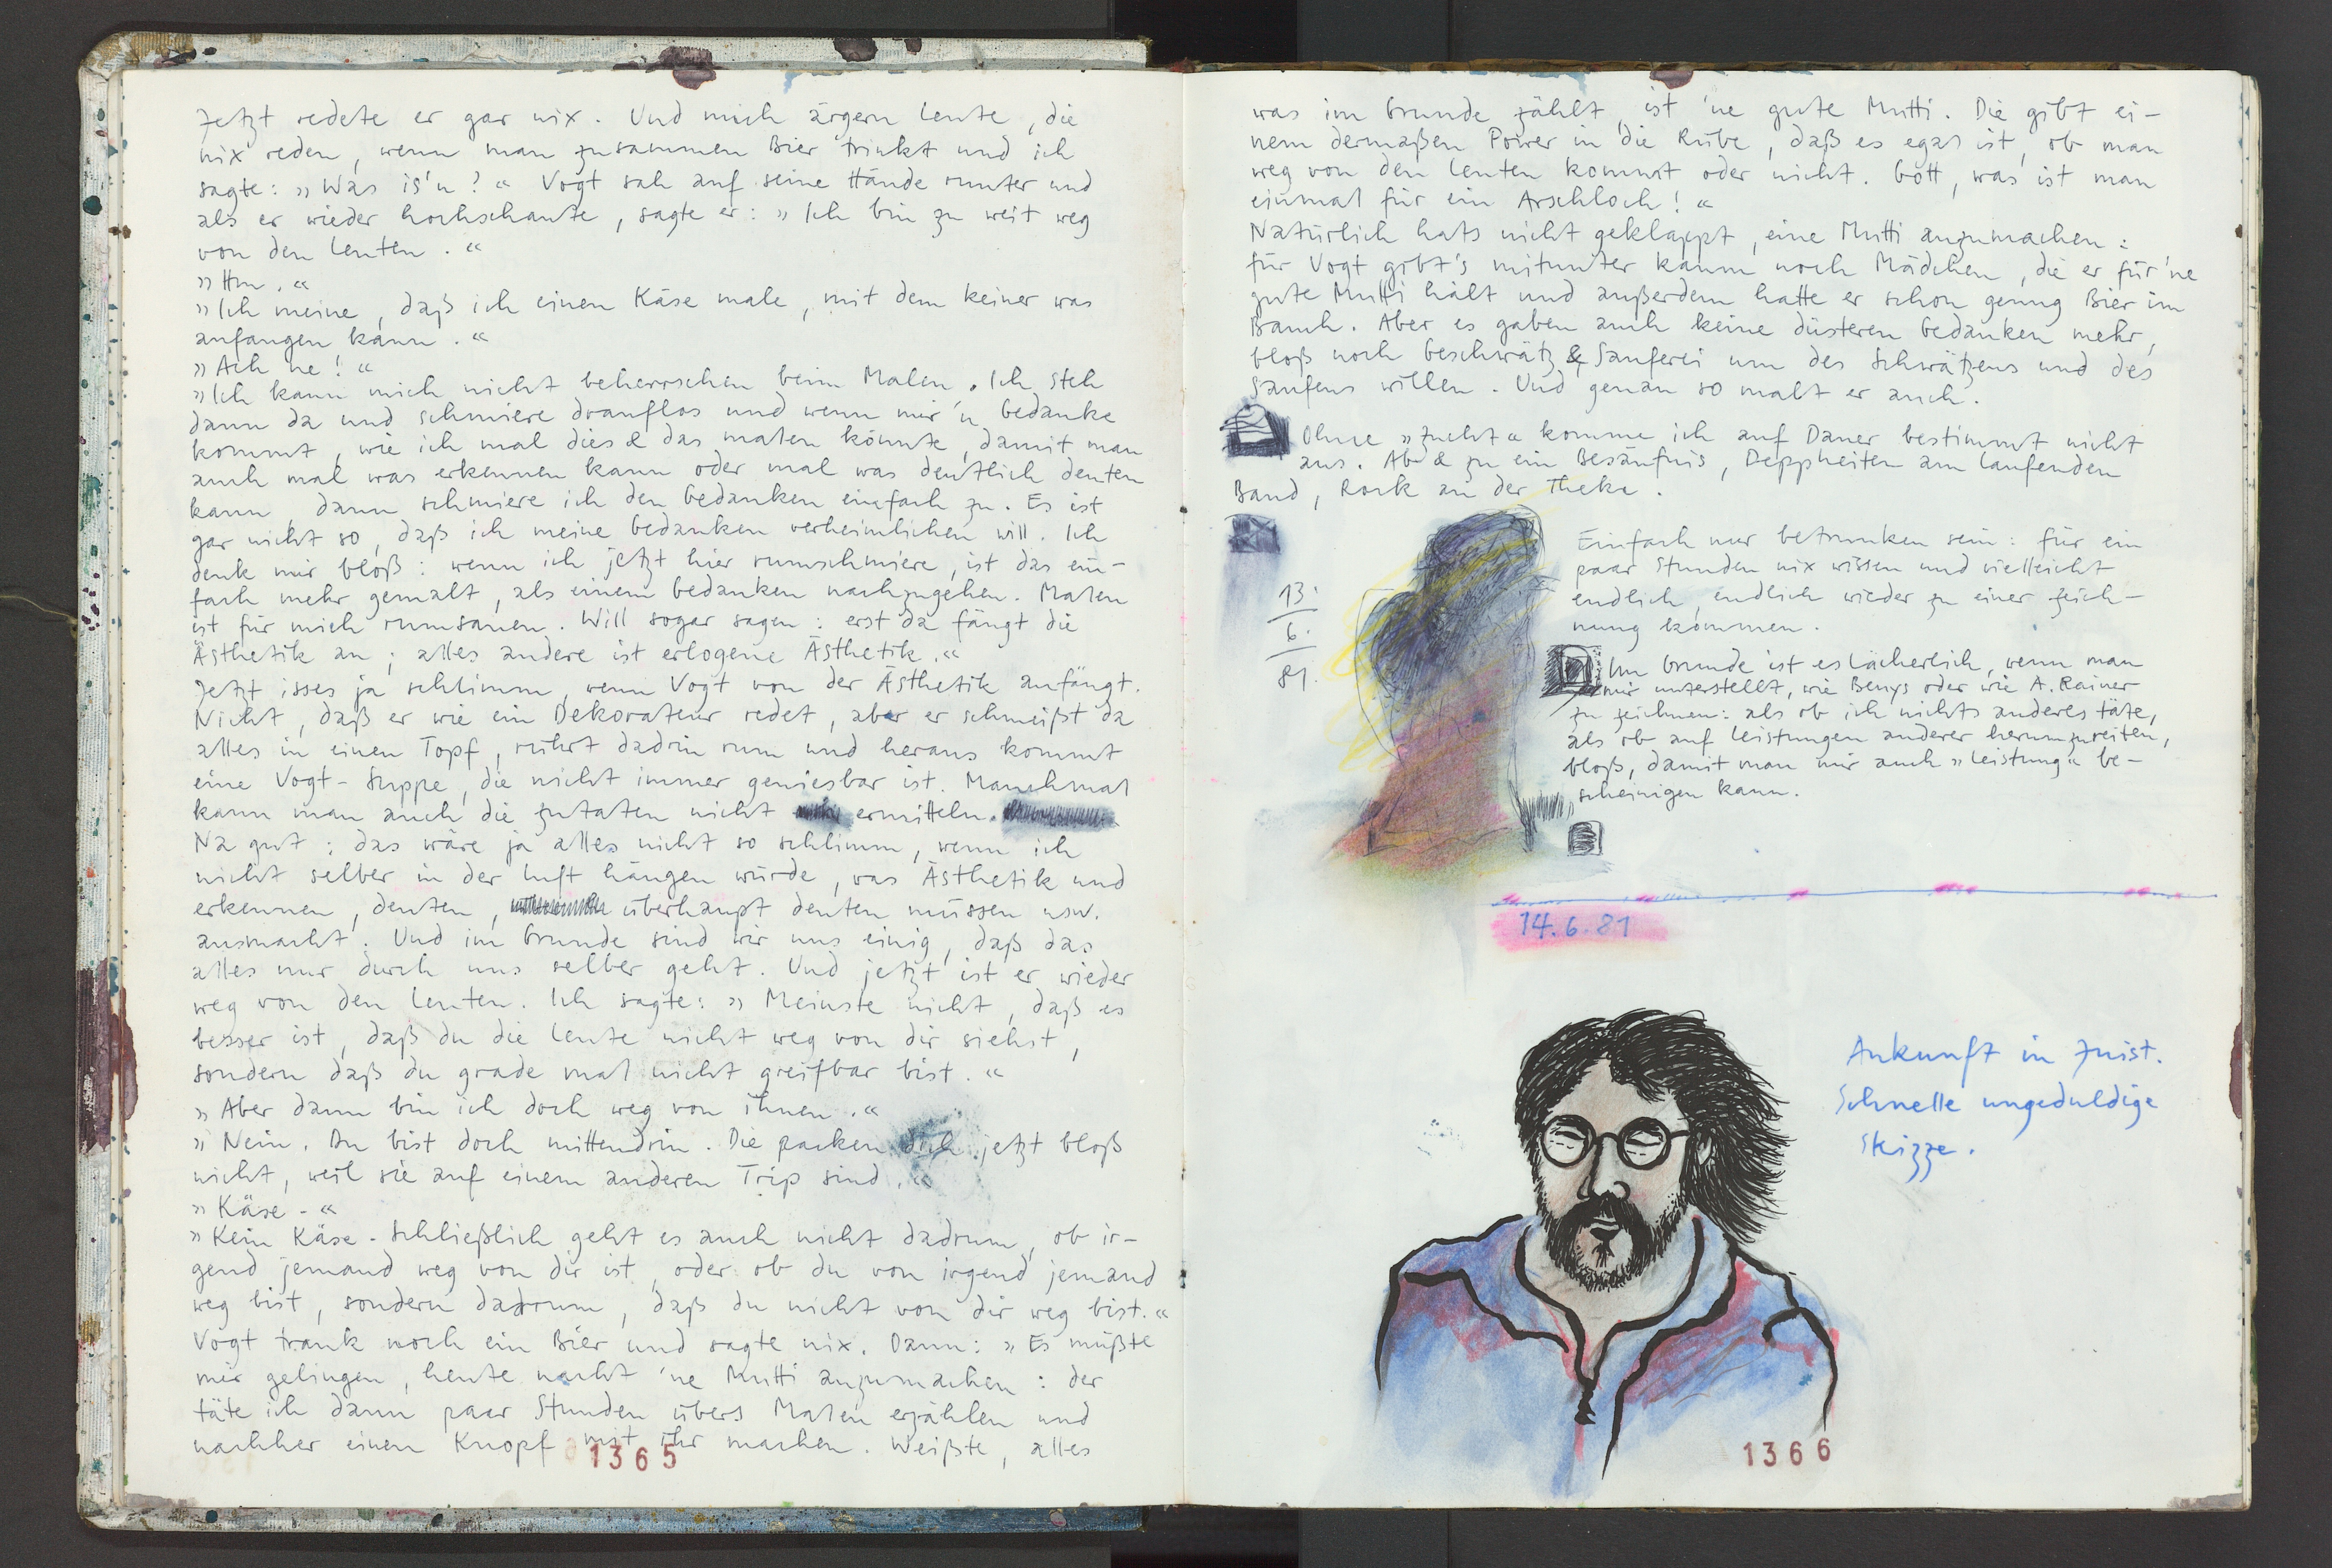 Jetzt redete er gar nix. Und mich ärgern Leute, die
nix reden, wenn man zusammen Bier trinkt und ich
sagte: »Was is'n?« Vogt sah auf seine Hände runter und
als er wieder hochschaute, sagte er: »Ich bin zu weit weg
von den Leuten.«
»Hm.«
»Ich meine, daß ich einen Käse male, mit dem keiner was
anfangen kann.«
»Ach ne!«
»Ich kann mich nicht beherrschen beim Malen. Ich steh
dann da und schmiere drauflos und wenn mir 'n Gedanke
kommt, wie ich mal dies & das malen könnte, damit man
auch mal was erkennen kann oder mal was deutlich deuten
kann, dann schmiere ich den Gedanken einfach zu. Es ist
gar nicht so, daß ich meine Gedanken verheimlichen will. Ich
denk mir bloß: wenn ich jetzt hier rumschmiere, ist das ein-
fach mehr gemalt, als einem Gedanken nachzugehen. Malen
ist für mich rumsauen. Will sogar sagen: erst da fängt die
Ästhetik an; alles andere ist erlogene Ästhetik.«
Jetzt isses ja schlimm, wenn Vogt von der Ästhetik anfängt.
Nicht, daß er wie ein Dekorateur redet, aber er schmeißt da
alles in einen Topf, rührt dadrin rum und heraus kommt
eine Vogt-Suppe, die nicht immer geniesbar ist. Manchmal
kann man auch die Zutaten nicht ermitteln.
Na gut; das wäre ja alles nicht so schlimm, wenn ich
nicht selber in der Luft hängen würde, was Ästhetik und
erkennen, deuten, überhaupt deuten müssen usw.
ausmacht. Und im Grunde sind wir uns einig, daß das
alles nur durch uns selber geht. Und jetzt ist er wieder
weg von den Leuten. Ich sagte: »Meinste nicht, daß es
besser ist, daß du die Leute nicht weg von dir siehst,
sondern daß du grade mal nicht greifbar bist.«
»Aber dann bin ich doch weg von ihnen.«
»Nein. Du bist doch mittendrin. Die packen dich jetzt bloß
nicht, weil sie auf einem anderen Trip sind.«
»Käse-«
»Kein Käse- Schließlich geht es auch nicht dadrum, ob ir-
gend jemand weg von dir ist, oder ob du von irgend jemand
weg bist, sondern dadrum, daß du nicht von dir weg bist.«
Vogt trank noch ein Bier und sagte nix. Dann: »Es müßte
mir gelingen, heute nacht 'ne Mutti anzumachen: der
täte ich dann paar Stunden übers Malen erzählen und
nachher einen Knopf mit ihr machen. Weißte, alles
1365
was im Grunde zählt, ist 'ne gute Mutti. Die gibt ei-
nem dermaßen Power in die Rübe, daß es egal ist, ob man
weg von den Leuten kommt oder nicht. Gott, was ist man
einmal für ein Arschloch!«
Natürlich hats nicht geklappt, eine Mutti anzumachen:
für Vogt gibt's mitunter kaum noch Mädchen, die er für 'ne
gute Mutti hält und außerdem hatte er schon genug Bier im
Bauch. Aber es gaben auch keine düsteren Gedanken mehr,
bloß noch Geschwätz & Sauferei um des Schwätzens und des
Saufens willen. Und genau so malt er auch.
Ohne »Zucht« komme ich auf Dauer bestimmt nicht
aus. Ab & zu ein Besäufnis, Deppheiten am laufenden
Band, Rock an der Theke.
Einfach nur betrunken sein: für ein
paar Stunden nix wissen und vielleicht
endlich, endlich wieder zu einer Zeich-
nung kommen.
13.
6.
81.
Im Grunde ist es lächerlich, wenn man
mir unterstellt, wie Beuys oder wie A. Rainer
zu zeichnen: als ob ich nichts anderes täte,
als ob auf Leistungen anderer herumzureiten,
bloß, damit man mir auch »Leistung« be-
scheinigen kann.
14.6.81
Ankunft in Juist.
Schnelle ungeduldige
Skizze.
1366